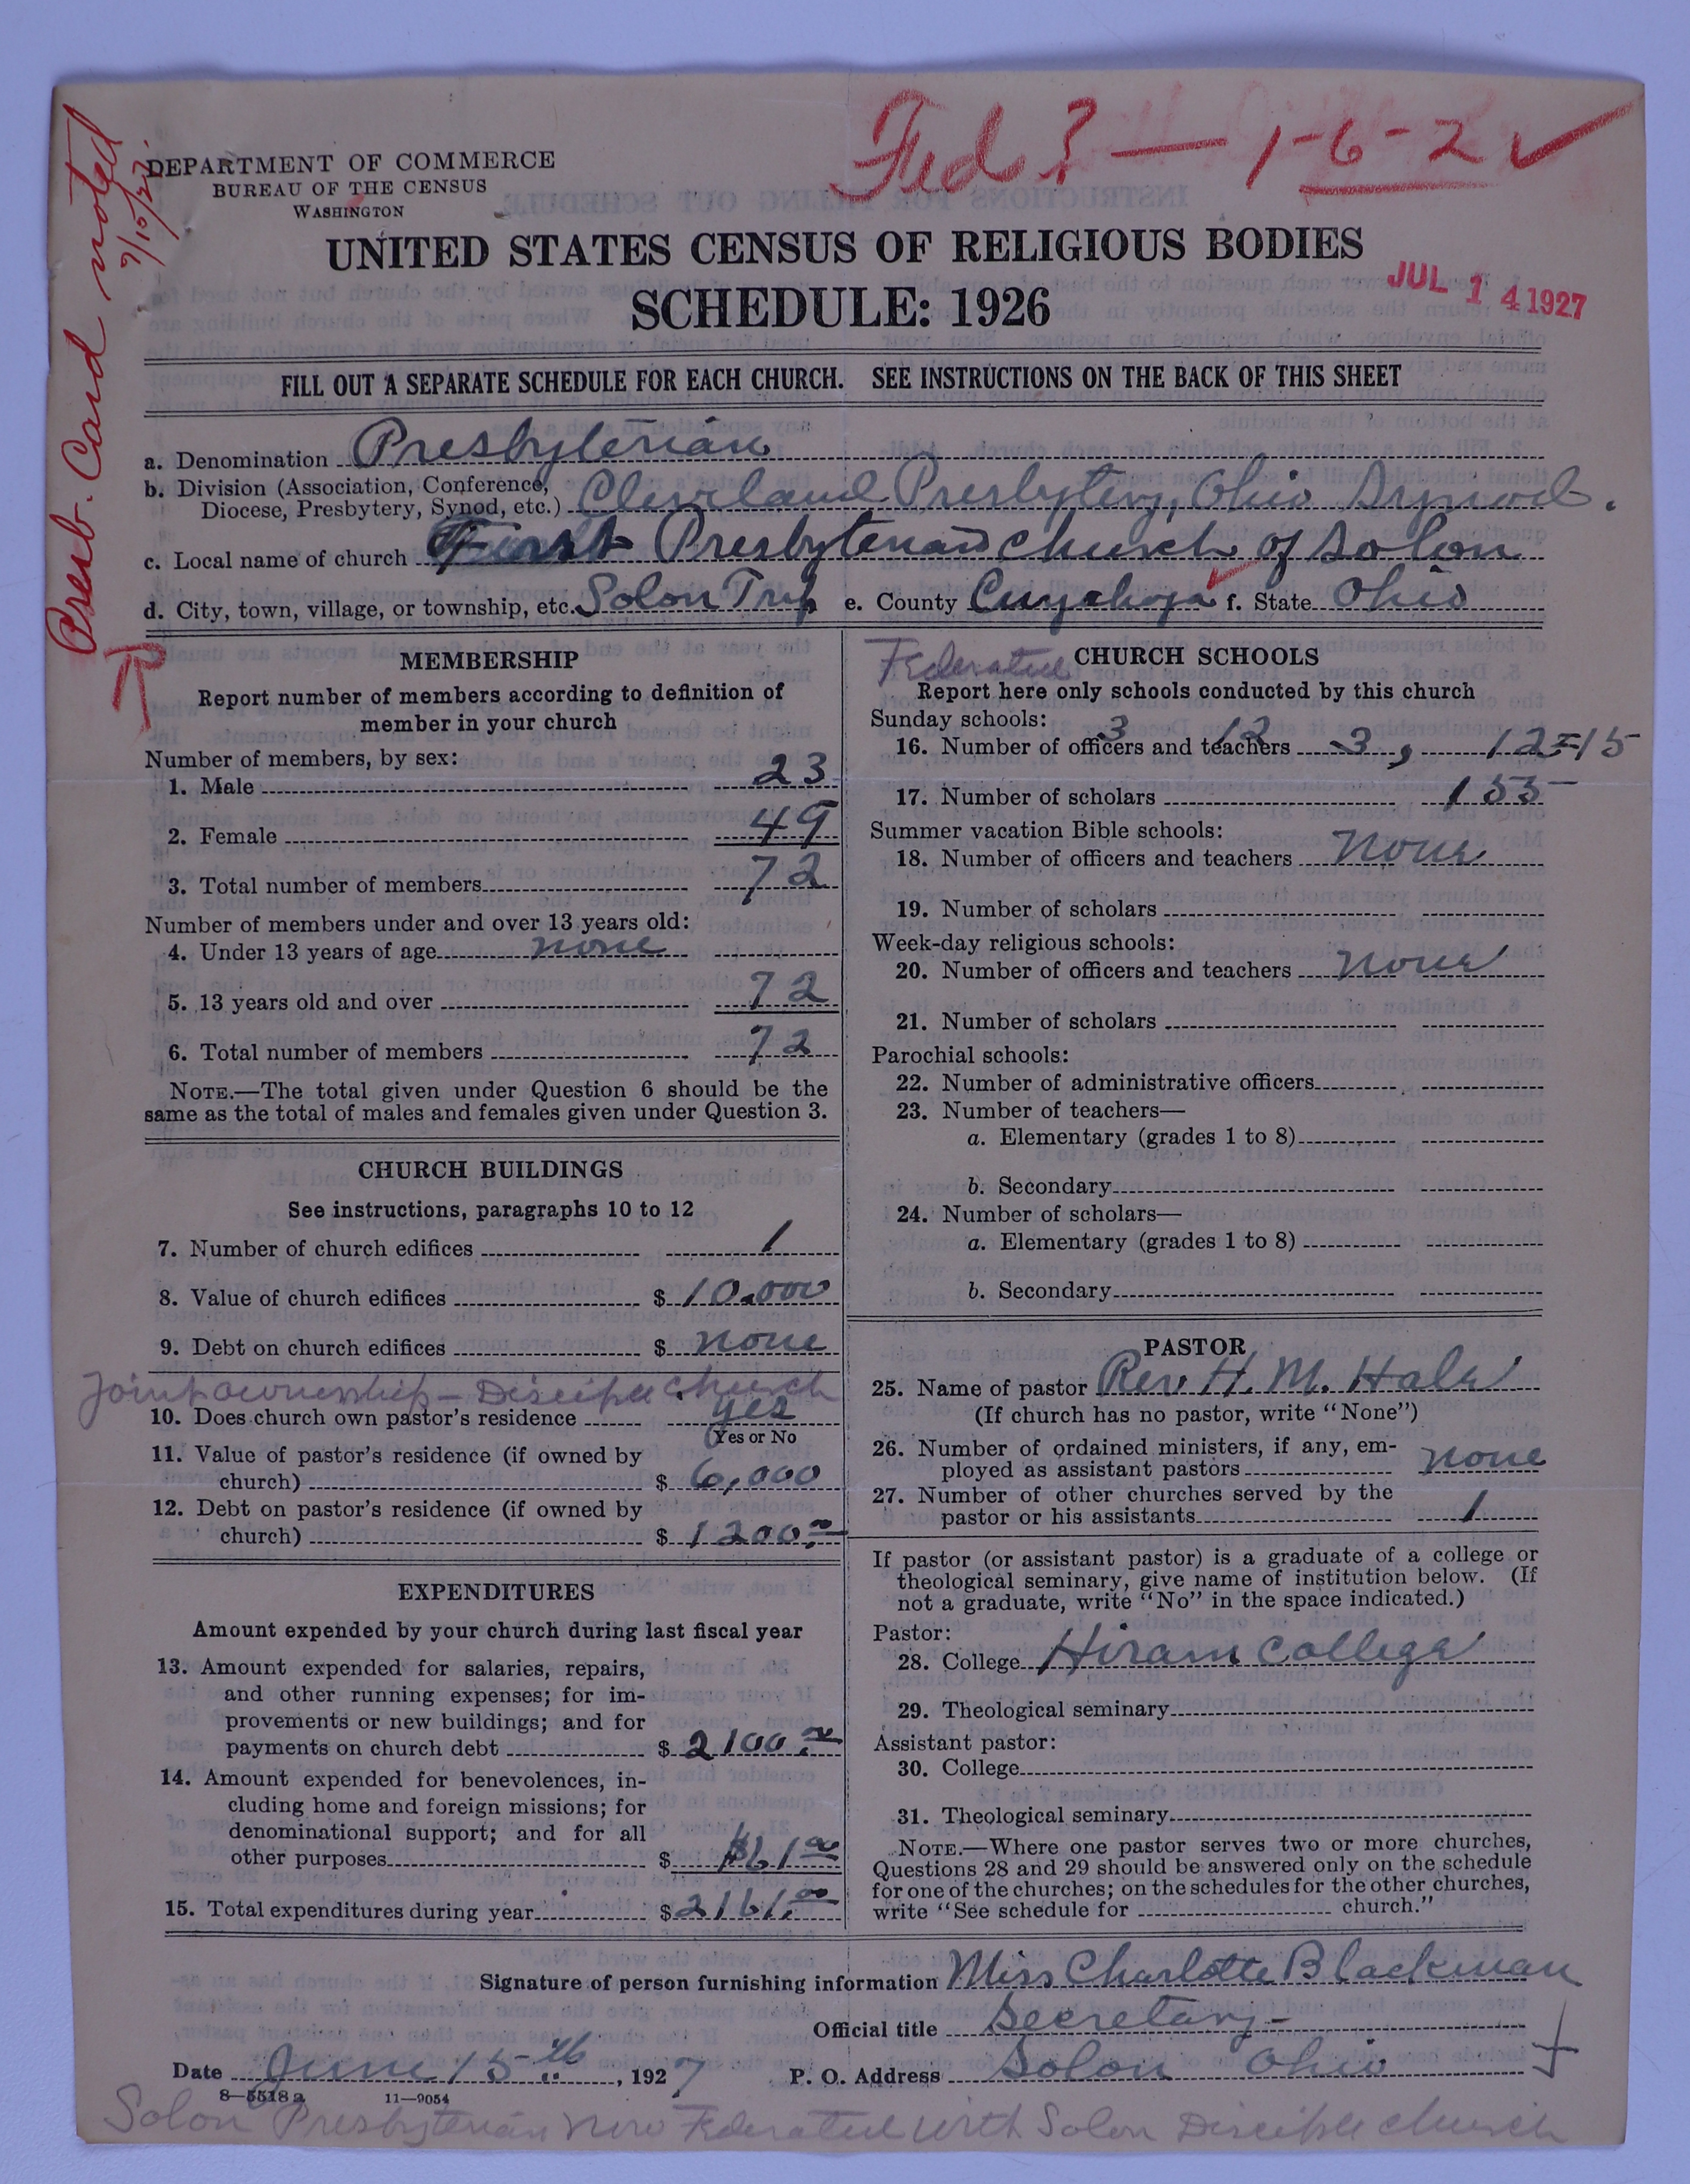 Fed ? — 1-6-2 ✓
Presb. Card noted
9/10/27.
DEPARTMENT OF COMMERCE
BUREAU OF THE CENSUS
WASHINGTON
UNITED STATES CENSUS OF RELIGIOUS BODIES
JUL 14 1927
SCHEDULE: 1926
FILL OUT A SEPARATE SCHEDULE FOR EACH CHURCH. SEE INSTRUCTIONS ON THE BACK OF THIS SHEET
a. Denomination Presbyterian
b. Division (Association, Conference,
Diocese, Presbytery, Synod, etc.) Cleveland Presbytery, Ohio Synod.
c. Local name of church First Presbyterian Church of Solon
d. City, town, village, or township, etc. Solon Twp e. County Cuyahoga f. State Ohio
MEMBERSHIP
Report number of members according to definition of
member in your church
Number of members, by sex:
1. Male 23
2. Female 49
3. Total number of members 72
Number of members under and over 13 years old:
4. Under 13 years of age none
5. 13 years old and over 72
6. Total number of members 72
NOTE.—The total given under Question 6 should be the
same as the total of males and females given under Question 3.
CHURCH BUILDINGS
See instructions, paragraphs 10 to 12
7. Number of church edifices 1
8. Value of church edifices $ 10,000
9. Debt on church edifices $ none
Joint ownership - Disciple Church
10. Does church own pastor's residence yes
(Yes or No
11. Value of pastor's residence (if owned by
church) $ 6,000
12. Debt on pastor's residence (if owned by
church) $ 1200.00
EXPENDITURES
Amount expended by your church during last fiscal year
13. Amount expended for salaries, repairs,
and other running expenses; for im-
provements or new buildings; and for
payments on church debt $ 2100.00
14. Amount expended for benevolences, in-
cluding home and foreign missions; for
denominational support; and for all
other purposes $ 61.00
15. Total expenditures during year $ 2161.00
Federated
CHURCH SCHOOLS
Report here only schools conducted by this church
Sunday schools:
3 12
16. Number of officers and teachers 3, 12=15
17. Number of scholars 155
Summer vacation Bible schools:
18. Number of officers and teachers None
19. Number of scholars
Week-day religious schools:
20. Number of officers and teachers None
21. Number of scholars
Parochial schools:
22. Number of administrative officers
23. Number of teachers—
a. Elementary (grades 1 to 8)
b. Secondary
24. Number of scholars—
a. Elementary (grades 1 to 8)
b. Secondary
PASTOR
25. Name of pastor Rev. H. M. Hale
(If church has no pastor, write "None")
26. Number of ordained ministers, if any, em-
ployed as assistant pastors none
27. Number of other churches served by the
pastor or his assistants 1
If pastor (or assistant pastor) is a graduate of a college or
theological seminary, give name of institution below. (If
not a graduate, write "No" in the space indicated.)
Pastor:
28. College Hiram College
29. Theological seminary
Assistant pastor:
30. College
31. Theological seminary
NOTE.—Where one pastor serves two or more churches,
Questions 28 and 29 should be answered only on the schedule
for one of the churches; on the schedules for the other churches,
write "See schedule for church."
Signature of person furnishing information Miss Charlotte Blackman
Official title Secretary-
Date June 15th, 1927 P. O. Address Solon Ohio
8—5518a 11—9054
Solon Presbyterian now Federated with Solon Disciple Church